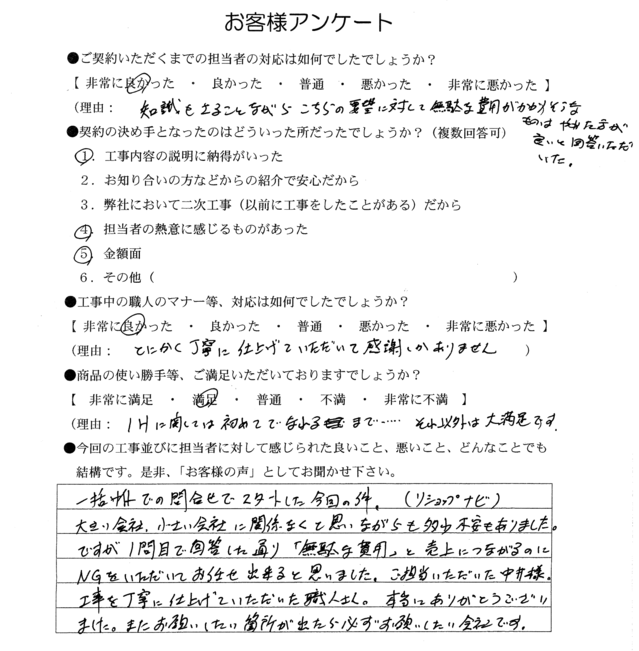 お客様アンケート
●ご契約いただくまでの担当者の対応は如何でしたでしょうか？
【 非常に良かった ・ 良かった ・ 普通 ・ 悪かった ・ 非常に悪かった 】
(理由： 知識もさることながら こちらの要望に対して無駄な費用がかかりそうな
ものは やめた方が
良いと回答いただ
いた。
●契約の決め手となったのはどういった所だったでしょうか？（複数回答可）
１．工事内容の説明に納得がいった
２．お知り合いの方などからの紹介で安心だから
３．弊社において二次工事（以前に工事をしたことがある）だから
４．担当者の熱意に感じるものがあった
５．金額面
６．その他（ ）
●工事中の職人のマナー等、対応は如何でしたでしょうか？
【 非常に良かった ・ 良かった ・ 普通 ・ 悪かった ・ 非常に悪かった 】
(理由： とにかく丁寧に仕上げていただいて感謝しかありません )
●商品の使い勝手等、ご満足いただいておりますでしょうか？
【 非常に満足 ・ 満足 ・ 普通 ・ 不満 ・ 非常に不満 】
(理由： IHに関しては初めてで なれるまで…… それ以外は大満足です。
●今回の工事並びに担当者に対して感じられた良いこと、悪いこと、どんなことでも
結構です。是非、「お客様の声」としてお聞かせ下さい。
一括サイトでの問合せでスタートした今回の件。（リショップナビ）
大きい会社、小さい会社に関係なくと思いながらも多少不安もありました。
ですが1問目で回答した通り「無駄な費用」と売上につながるのに
NGをいただいてお任せ出来ると思いました。ご担当いただいた中井様。
工事を丁寧に仕上げていただいた職人さん。 本当にありがとうござい
ました。またお願いしたい箇所が出たら必ずお願いしたい会社です。